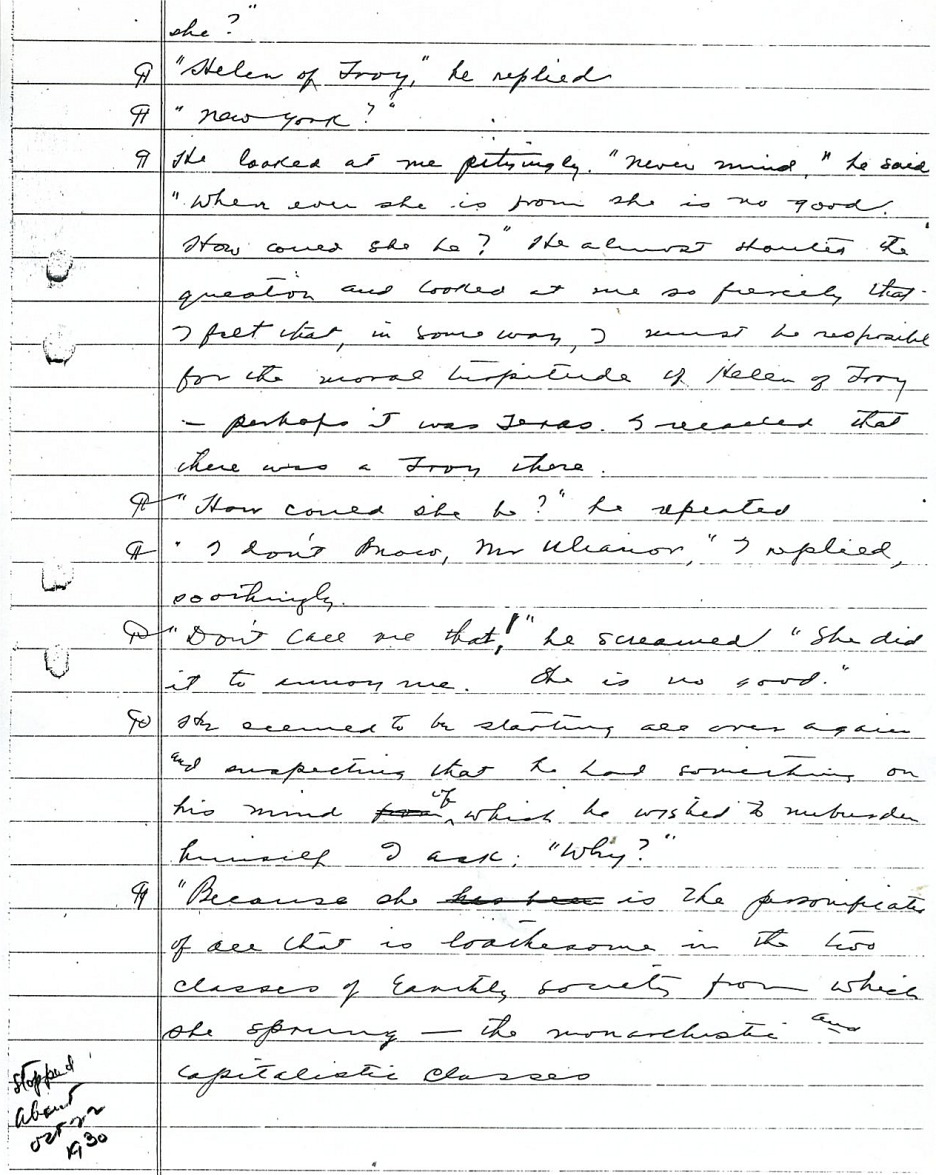 she?"
¶ "Helen of Troy," he replied
¶ "New York?"
¶ He looked at me pityingly. "Never mind," he said
"When ever she is from she is no good.
How could she be?" He almost shouted the
question and looked at me so fiercely that
I felt that, in some way, I must be resposible
for the moral turpitude of Helen of Troy
— perhaps it was Texas. I recalled that
there was a Troy there.
¶ "How could she be?" he repeated
¶ "I don't know, Mr Ulianov," I replied,
soothingly.
¶ "Don't call me that!" he screamed "She did
it to annoy me. She is no good."
¶ He seemed to be starting all over again
and suspecting that he had something on
his mind of which he wished to unburden
himself I ask: "Why?"
¶ "Because she has been is the personification
of all that is loathesome in the two
classes of Earthly society from which
she sprung — the monarchistic and
capitalistic classes
Stopped
about
Oct 22
1930